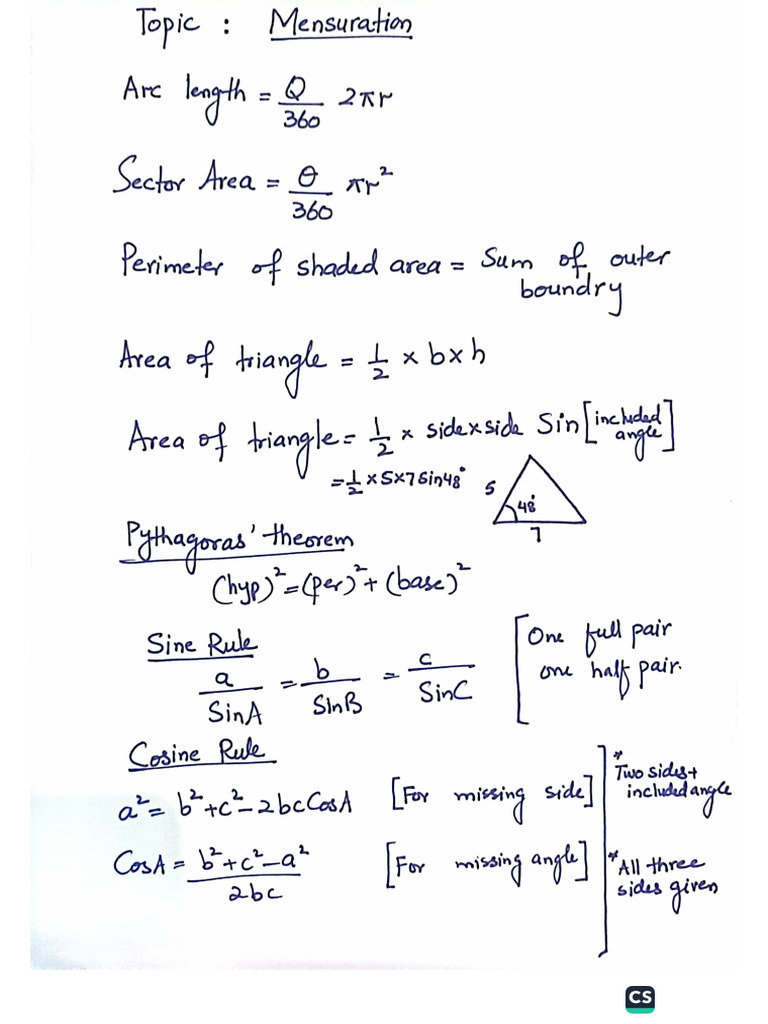 Topic : Mensuration
Arc length = Q/360 2πr
Sector Area = θ/360 πr²
Perimeter of shaded area = Sum of outer
boundry
Area of triangle = 1/2 × b×h
Area of triangle = 1/2 × side×side Sin [included angle]
= 1/2 ×5×7 Sin48°
5
48°
7
Pythagoras' theorem
(hyp)² = (per)² + (base)²
Sine Rule
a/SinA = b/SinB = c/SinC
[One full pair
one half pair.
Cosine Rule
a² = b²+c²-2bcCosA [For missing side]
* Two sides+
included angle
CosA = b²+c²-a²/2bc [For missing angle]
* All three
sides given
CS